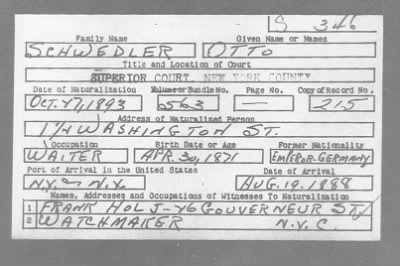 S 346
Family Name Given Name or Names
SCHWEDLER OTTO
Title and Location of Court
SUPERIOR COURT, NEW YORK COUNTY
Date of Naturalization Volume or Bundle No. Page No. Copy of Record No.
OCT. 27, 1893 563 — 215
Address of Naturalized Person
174 WASHINGTON ST.
Occupation Birth Date or Age Former Nationality
WAITER APR. 30, 1871 EMPEROR-GERMANY
Port of Arrival in the United States Date of Arrival
N.Y. N.Y. AUG. 19. 1888
Names, Addresses and Occupations of Witnesses To Naturalization
1 FRANK HOLJ-46 GOUVERNEUR ST.
2 WATCHMAKER N.Y.C.